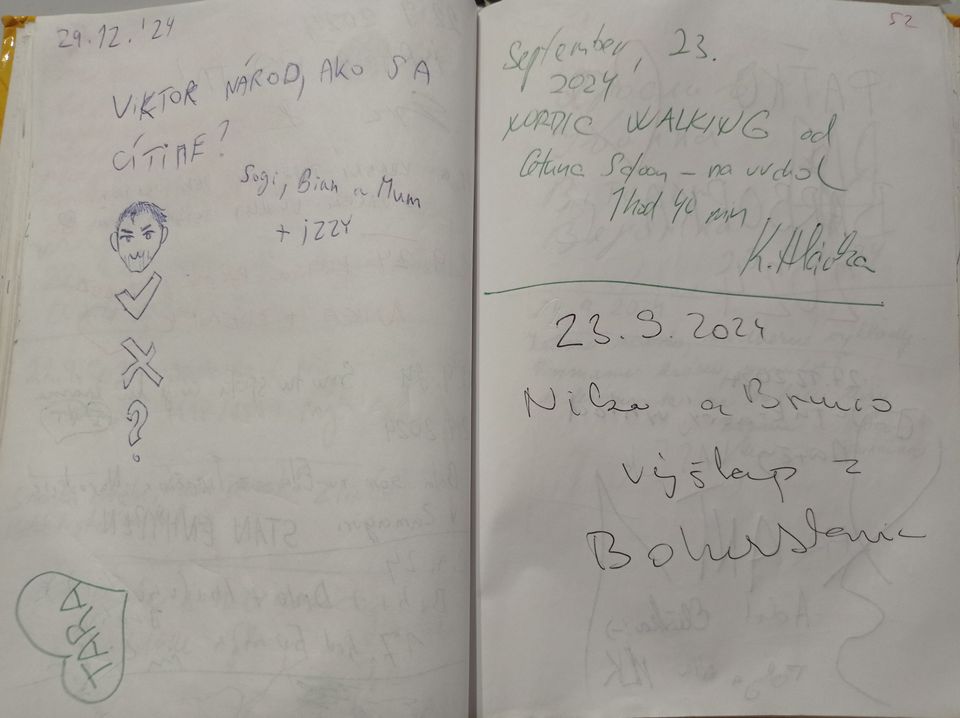 29.12.'24
VIKTOR NÁROD, AKO SA
CÍTIME?
Sogi, Bian a Mum
+ iZZY
?
TARA
52
September, 23.
2024
NORDIC WALKING od
– na vrchol
1hod 40 min
K. Hládza
23.9.2024
Nika a Bruno
výšlap z